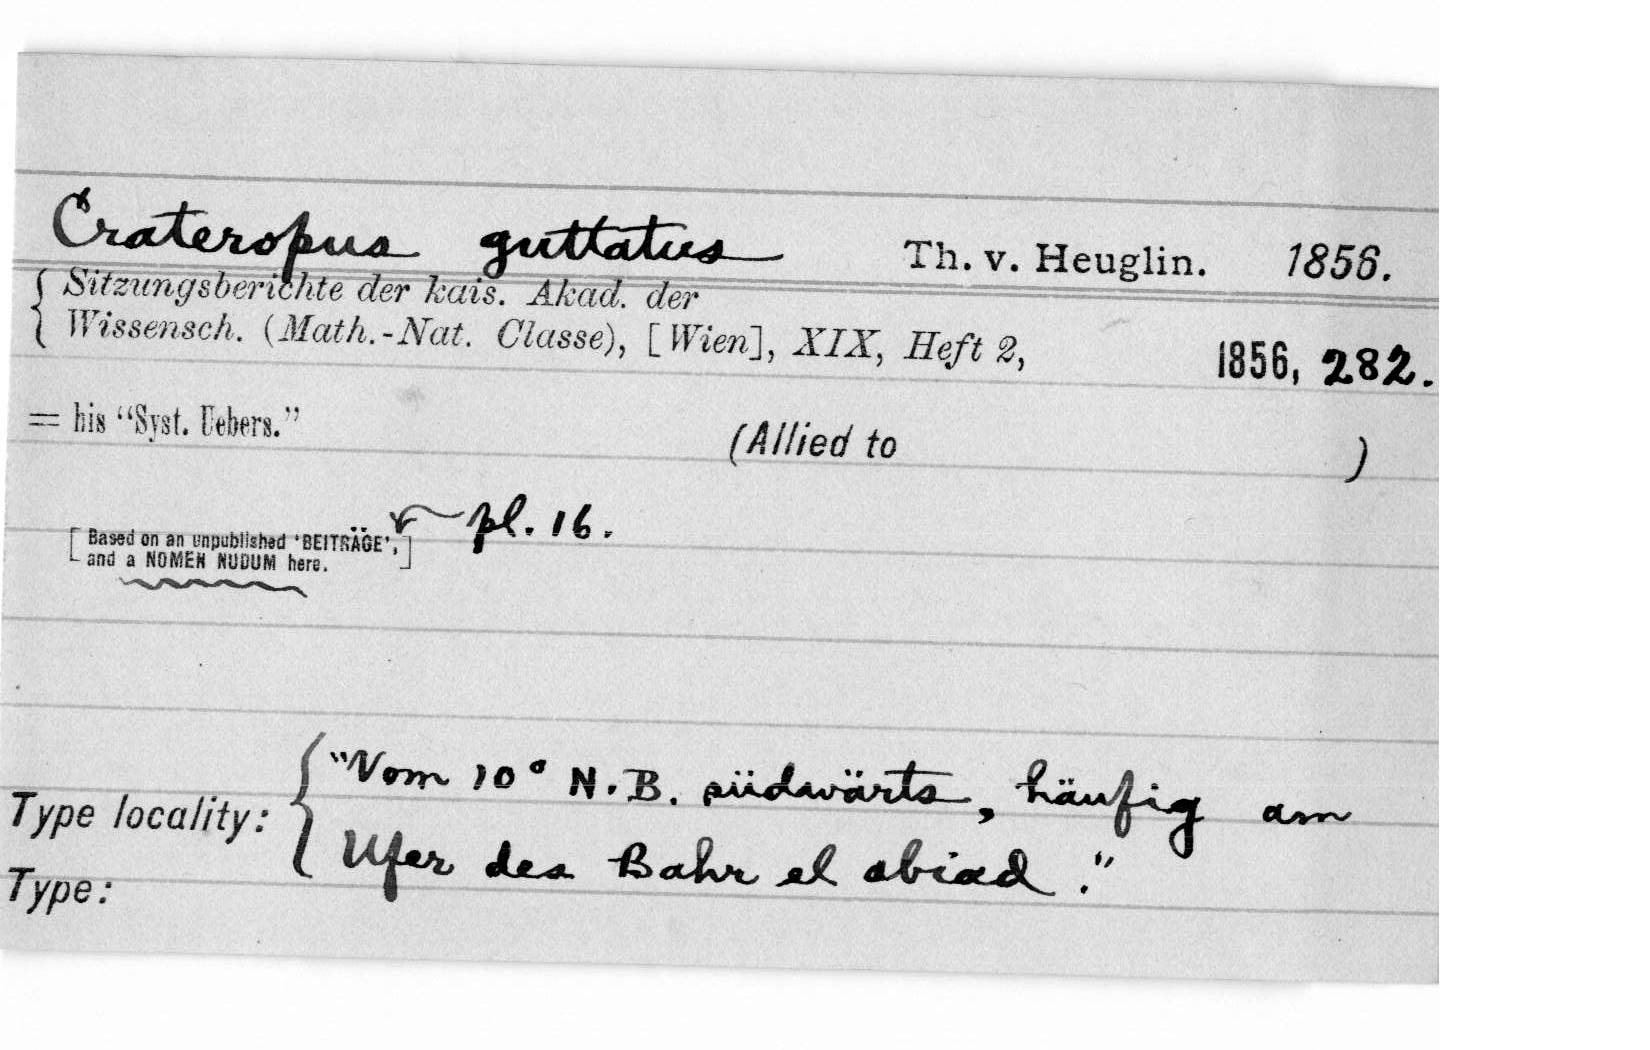 Crateropus guttatus Th. v. Heuglin. 1856.
Sitzungsberichte der kais. Akad. der
Wissensch. (Math.-Nat. Classe), [Wien], XIX, Heft 2, 1856, 282.
= his “Syst. Uebers.” (Allied to )
pl. 16.
[Based on an unpublished ‘BEITRÄGE’,
and a NOMEN NUDUM here.]
Type locality: "Vom 10° N.B. südwärts, häufig am
Ufer des Bahr el abiad."
Type: